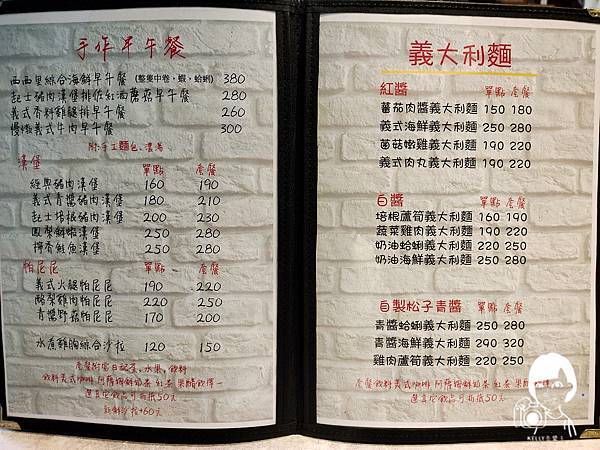 手作早午餐
西西里綜合海鮮早午餐 (整隻中卷、蝦、蛤蜊) 380
起士豬肉漢堡排佐紅酒蘑菇早午餐 280
義式香料雞腿排早午餐 260
慢燉義式牛肉早午餐 300
附:手工麵包、濃湯
漢堡 單點 套餐
經典豬肉漢堡 160 190
義式青醬豬肉漢堡 180 210
起士培根豬肉漢堡 200 230
鳳梨鮮蝦漢堡 250 280
檸香鮭魚漢堡 250 280
帕尼尼 單點 套餐
義式火腿帕尼尼 190 220
酪梨雞肉帕尼尼 220 250
青醬野菇帕尼尼 170 200
水煮雞胸綜合沙拉 120 150
套餐附當日甜點、水果、飲料
飲料義式咖啡 阿薩姆鮮奶茶 紅茶 果醋飲擇一
選其它飲品可折抵50元
套餐沙拉+60元
義大利麵
紅醬 單點 套餐
蕃茄肉醬義大利麵 150 180
義式海鮮義大利麵 250 280
菌菇嫩雞義大利麵 190 220
義式肉丸義大利麵 190 220
白醬 單點 套餐
培根蘆筍義大利麵 160 190
蔬菜雞肉義大利麵 190 220
奶油蛤蜊義大利麵 220 250
奶油海鮮義大利麵 250 280
自製松子青醬 單點 套餐
青醬蛤蜊義大利麵 250 280
青醬海鮮義大利麵 290 320
雞肉蘆筍義大利麵 220 250
套餐飲料義式咖啡 阿薩姆鮮奶茶 紅茶 果醋飲擇一
選其它飲品可折抵50元